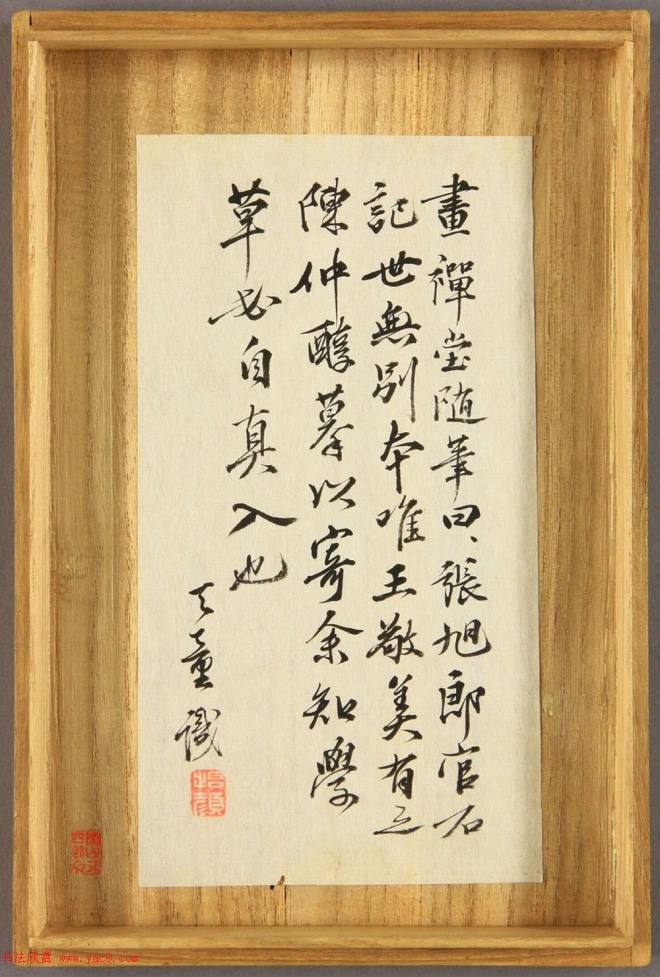 畫禪堂随筆曰、張旭郎官石
記世無別本唯王敬美有之
陳仲醇摹以寄余知學
草必自真入也
天童識
书法欣赏 www.yac8.com